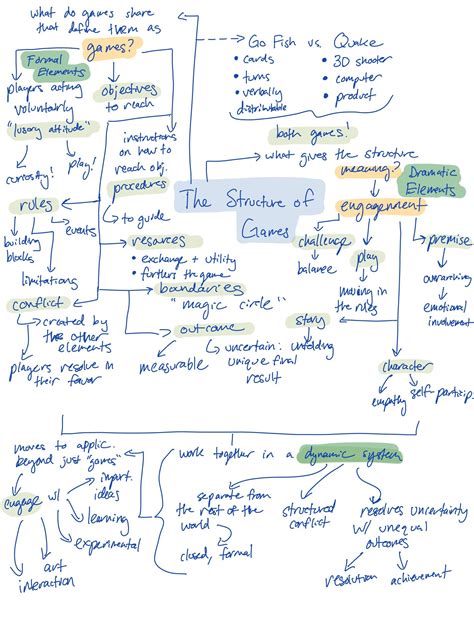 what do games share
that define them as
games?
Formal
Elements
players acting
voluntarily
"lusory attitude"
curiosity!
play!
objectives
to reach
instructions
on how to
reach obj.
procedures
to guide
Go Fish vs. Quake
• cards
• turns
• verbally
distributable
• 3D shooter
• computer
• product
both games!
what gives the structure
meaning?
Dramatic
Elements
engagement
The Structure of
Games
rules
building
blocks
events
limitations
resources
• exchange + utility
• further the game
boundaries
"magic circle"
conflict
created by
the other
elements
players resolve in
their favor
outcome
measurable
uncertain: unfolding
unique final
result
challenge
balance
play
moving in
the rules
premise
overarching
emotional
involvement
story
character
empathy
self-particip
moves to applic.
beyond just "games"
engage w/
import.
ideas
learning
experimental
art
interaction
work together in a dynamic system
separate from
the rest of the
world
closed, formal
structured
conflict
resolves uncertainty
w/ unequal
outcomes
resolution
achievement